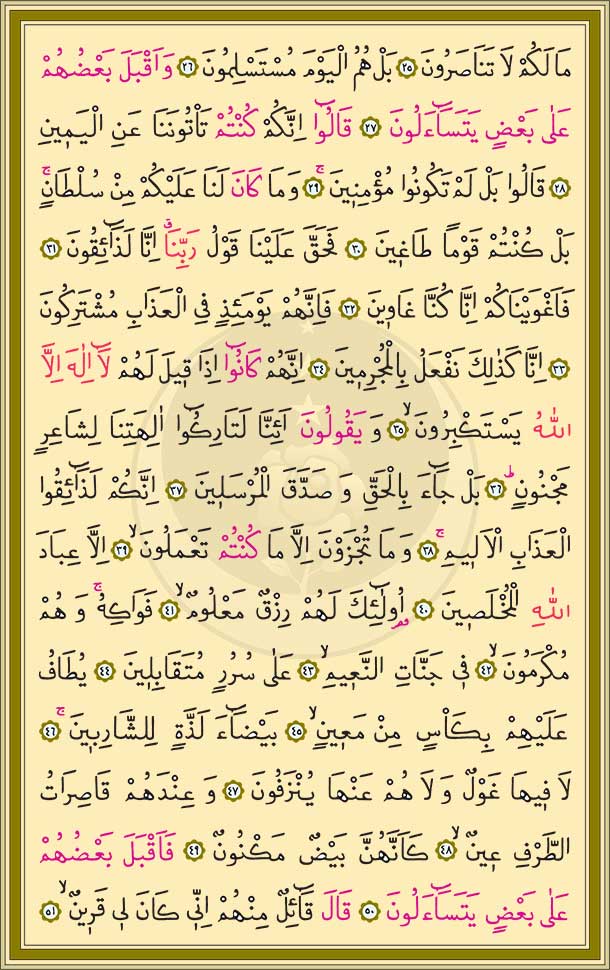 مَا لَكُمْ لَا تَنَاصَرُونَ ﴿٢٥﴾ بَلْ هُمُ الْيَوْمَ مُسْتَسْلِمُونَ ﴿٢٦﴾ وَاَقْبَلَ بَعْضُهُمْ
عَلٰى بَعْضٍ يَتَسَٓاءَلُونَ ﴿٢٧﴾ قَالُٓوا اِنَّكُمْ كُنْتُمْ تَأْتُونَنَا عَنِ الْيَم۪ينِ
﴿٢٨﴾ قَالُوا بَلْ لَمْ تَكُونُوا مُؤْمِن۪ينَۚ ﴿٢٩﴾ وَمَا كَانَ لَنَا عَلَيْكُمْ مِنْ سُلْطَانٍۚ
بَلْ كُنْتُمْ قَوْمًا طَاغ۪ينَ ﴿٣٠﴾ فَحَقَّ عَلَيْنَا قَوْلُ رَبِّنَاۗ اِنَّا لَذَٓائِقُونَ ﴿٣١﴾
فَاَغْوَيْنَاكُمْ اِنَّا كُنَّا غَاو۪ينَ ﴿٣٢﴾ فَاِنَّهُمْ يَوْمَئِذٍ فِي الْعَذَابِ مُشْتَرِكُونَ
﴿٣٣﴾ اِنَّا كَذٰلِكَ نَفْعَلُ بِالْمُجْرِم۪ينَ ﴿٣٤﴾ اِنَّهُمْ كَانُٓوا اِذَا ق۪يلَ لَهُمْ لَٓا اِلٰهَ اِلَّا
اللّٰهُ يَسْتَكْبِرُونَۙ ﴿٣٥﴾ وَ يَقُولُونَ اَئِنَّا لَتَارِكُٓوا اٰلِهَتِنَا لِشَاعِرٍ
مَجْنُونٍۜ ﴿٣٦﴾ بَلْ جَٓاءَ بِالْحَقِّ وَ صَدَّقَ الْمُرْسَل۪ينَ ﴿٣٧﴾ اِنَّكُمْ لَذَٓائِقُوا
الْعَذَابِ الْاَل۪يمِۚ ﴿٣٨﴾ وَ مَا تُجْزَوْنَ اِلَّا مَا كُنْتُمْ تَعْمَلُونَۙ ﴿٣٩﴾ اِلَّا عِبَادَ
اللّٰهِ الْمُخْلَص۪ينَ ﴿٤٠﴾ اُو۬لٰٓئِكَ لَهُمْ رِزْقٌ مَعْلُومٌۙ ﴿٤١﴾ فَوَاكِهُۚ وَ هُمْ
مُكْرَمُونَۙ ﴿٤٢﴾ ف۪ي جَنَّاتِ النَّع۪يمِۙ ﴿٤٣﴾ عَلٰى سُرُرٍ مُتَقَابِل۪ينَ ﴿٤٤﴾ يُطَافُ
عَلَيْهِمْ بِكَأْسٍ مِنْ مَع۪ينٍۙ ﴿٤٥﴾ بَيْضَٓاءَ لَذَّةٍ لِلشَّارِب۪ينَۚ ﴿٤٦﴾
لَا ف۪يهَا غَوْلٌ وَ لَا هُمْ عَنْهَا يُنْزَفُونَ ﴿٤٧﴾ وَ عِنْدَهُمْ قَاصِرَاتُ
الطَّرْفِ ع۪ينٌۙ ﴿٤٨﴾ كَاَنَّهُنَّ بَيْضٌ مَكْنُونٌ ﴿٤٩﴾ فَاَقْبَلَ بَعْضُهُمْ
عَلٰى بَعْضٍ يَتَسَٓاءَلُونَ ﴿٥٠﴾ قَالَ قَٓائِلٌ مِنْهُمْ اِنّ۪ي كَانَ ل۪ي قَر۪ينٌۙ ﴿٥١﴾